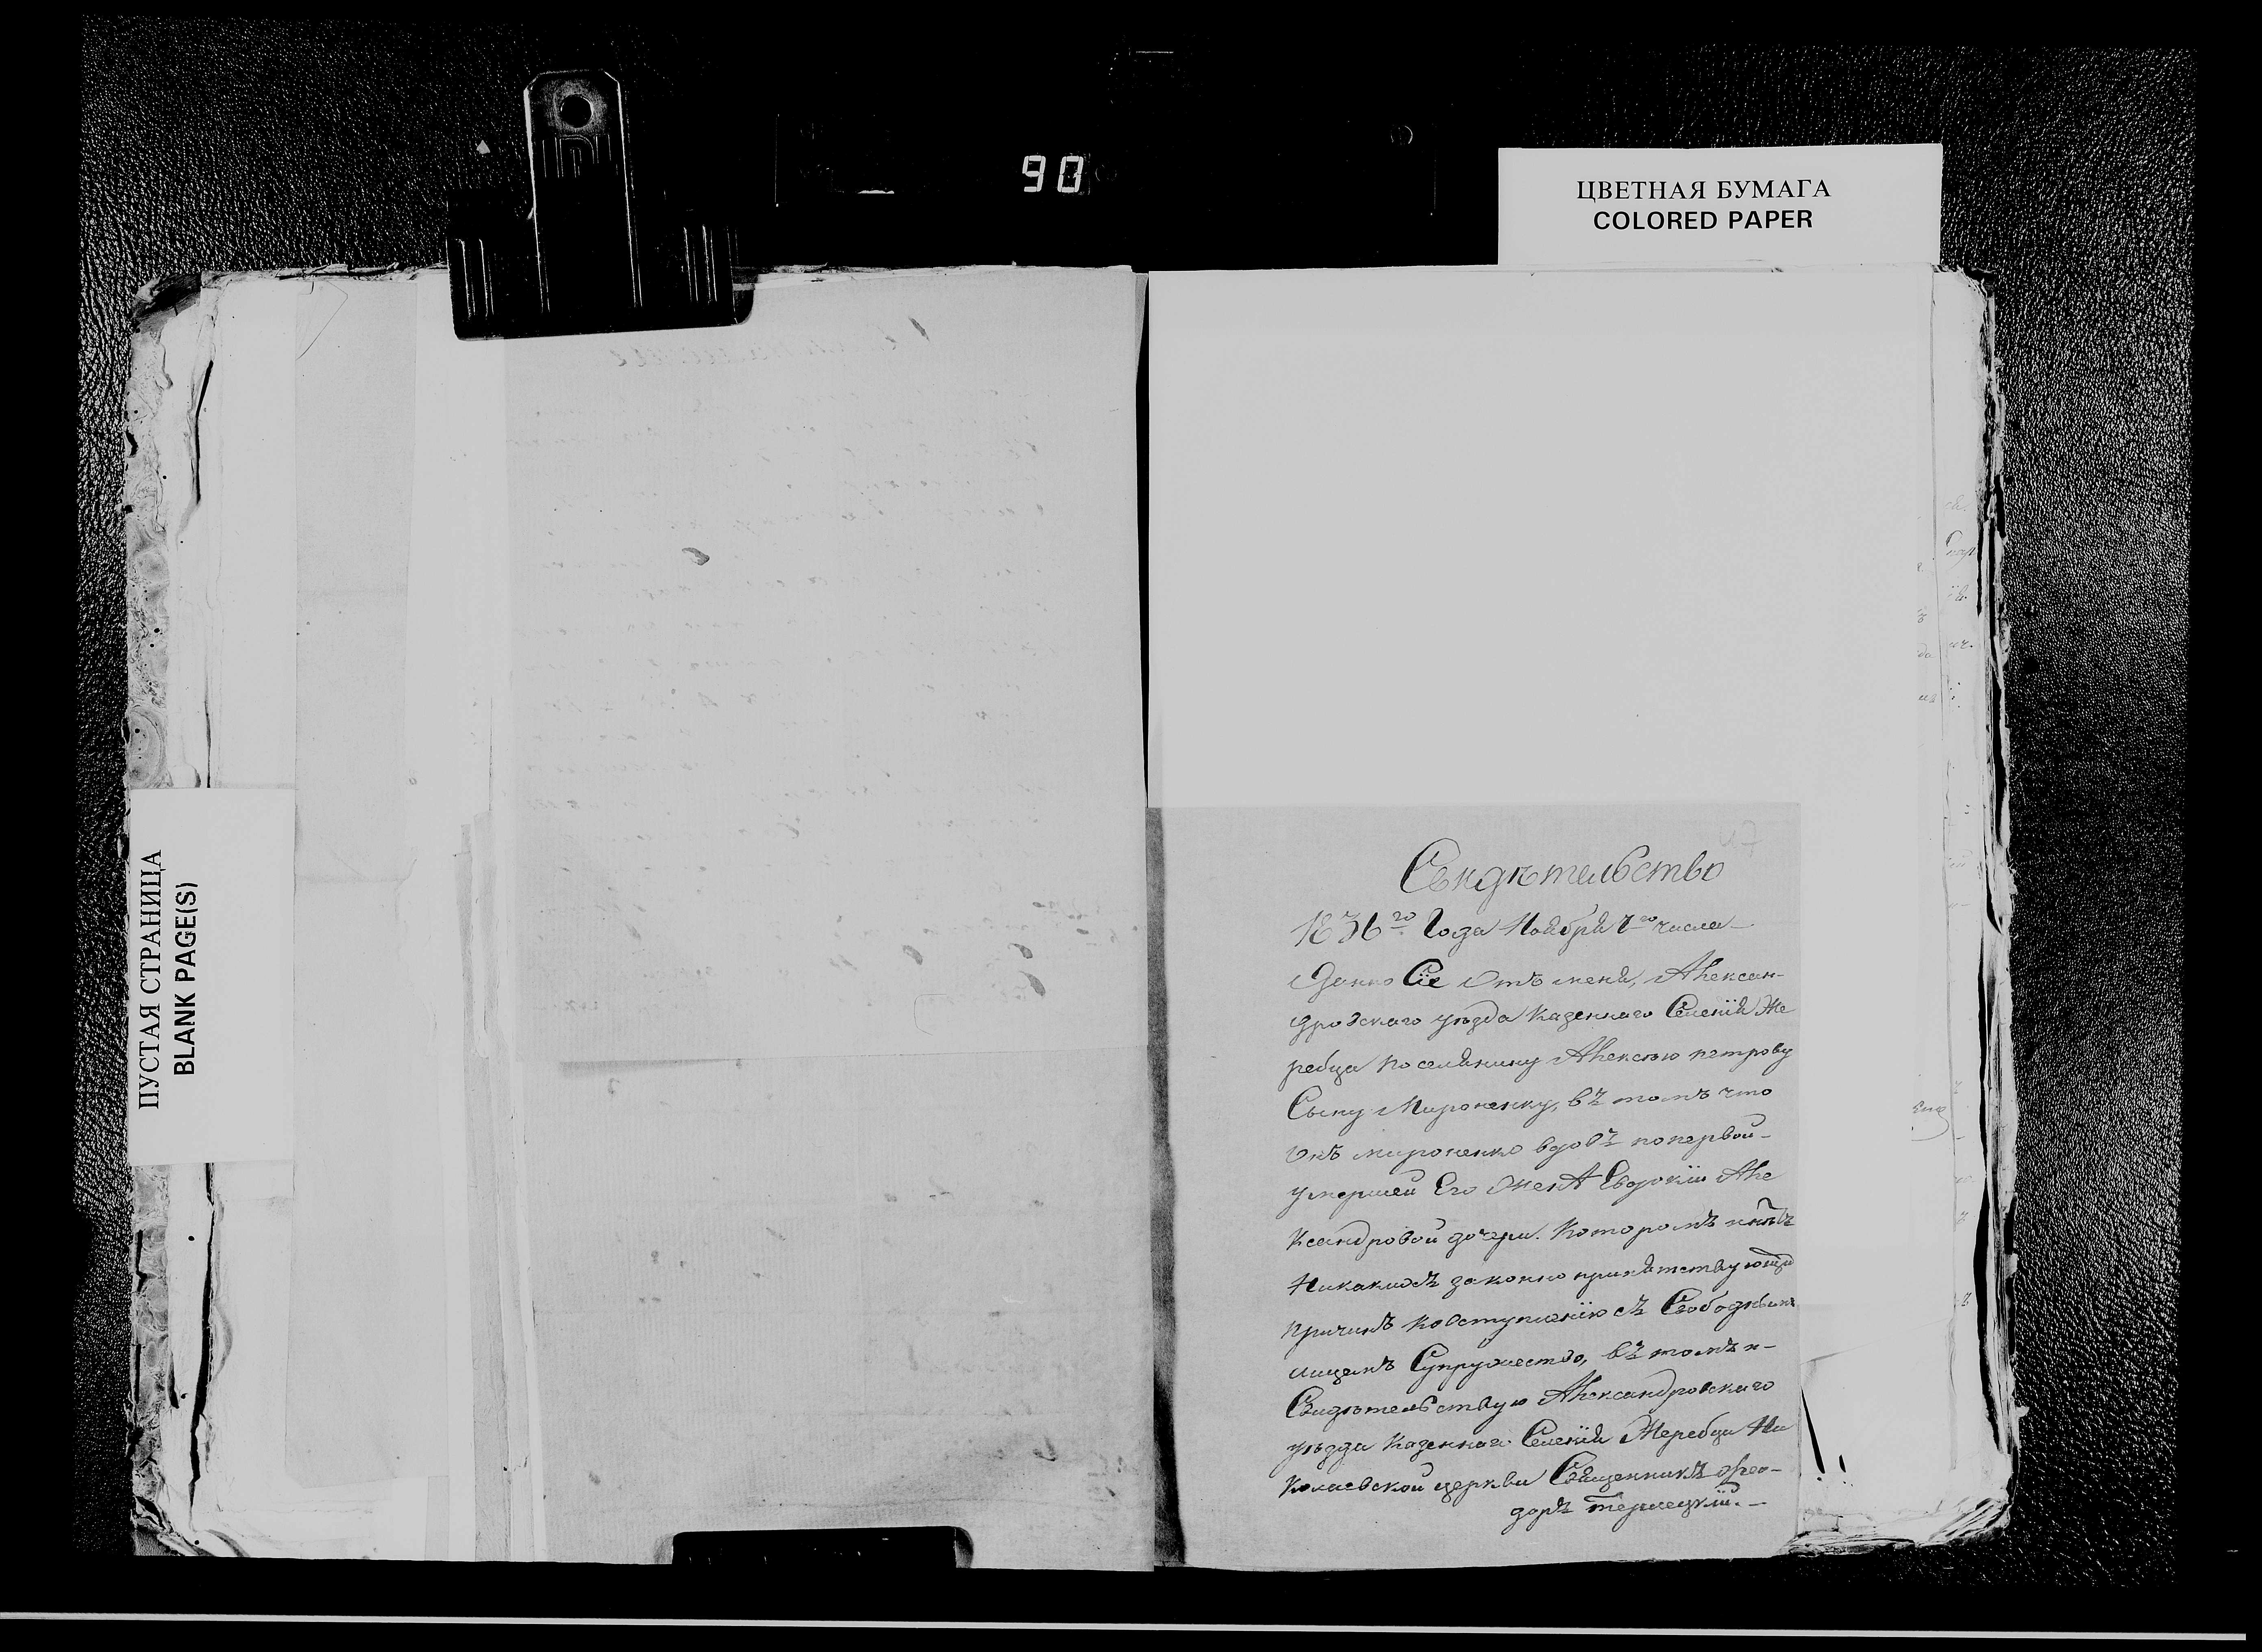 90
ЦВЕТНАЯ БУМАГА
COLORED PAPER
ПУСТАЯ СТРАНИЦА
BLANK PAGE(S)
47
Свидѣтельство
1836го Года Ноября 7го числа
Дано Сіе Отъ меня, Алексан-
дровскаго уѣзда Казеннаго Селенія Же
ребца Поселянину Алексѣю петрову
Сыну Мироненку, въ томъ что
Онъ мироненко вдовъ по первой
умершей Его Женѣ Евдокіи Але
Ксандровой дочери. Которомъ
Никакихъ законно препятствующихъ
причинъ Ко вступленію съ Свободнымъ
лицемъ Супружество, въ томъ и
Свидѣтельствую Александровскаго
уѣзда Казеннаго Селенія Жеребца Ни
Колаевской церкви Священникъ Фео-
доръ